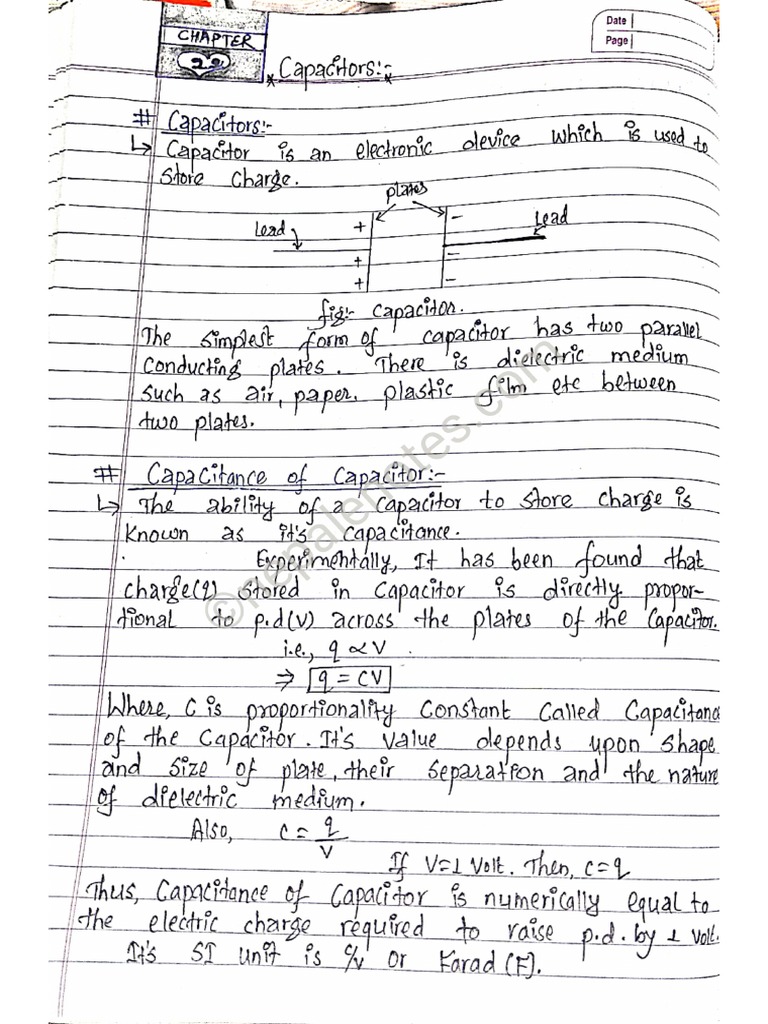 Date
Page
CHAPTER
22
* Capacitors:- *
# Capacitors:-
↳ Capacitor is an electronic device which is used to
store charge.
plates
Lead + - Lead
+ -
+ -
fig:- capacitor.
The simplest form of capacitor has two parallel
conducting plates. There is dielectric medium
such as air, paper. plastic film etc between
two plates.
# Capacitance of Capacitor:-
↳ The ability of a capacitor to store charge is
known as it's capacitance.
Experimentally, It has been found that
charge(q) stored in capacitor is directly propor-
tional to p.d(v) across the plates of the capacitor.
i.e., q ∝ V
⇒ q = CV
Where, C is proportionality constant called Capacitanc
of the capacitor. It's value depends upon shape
and size of plate, their separation and the nature
of dielectric medium.
Also, C = q/V
If V=1 Volt. Then, C=q
Thus, Capacitance of Capacitor is numerically equal to
the electric charge required to raise p.d. by 1 volt.
It's SI unit is C/V or Farad (F).
©nepalenotes.com